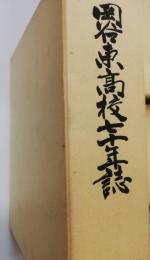 岡谷東高校七十年誌